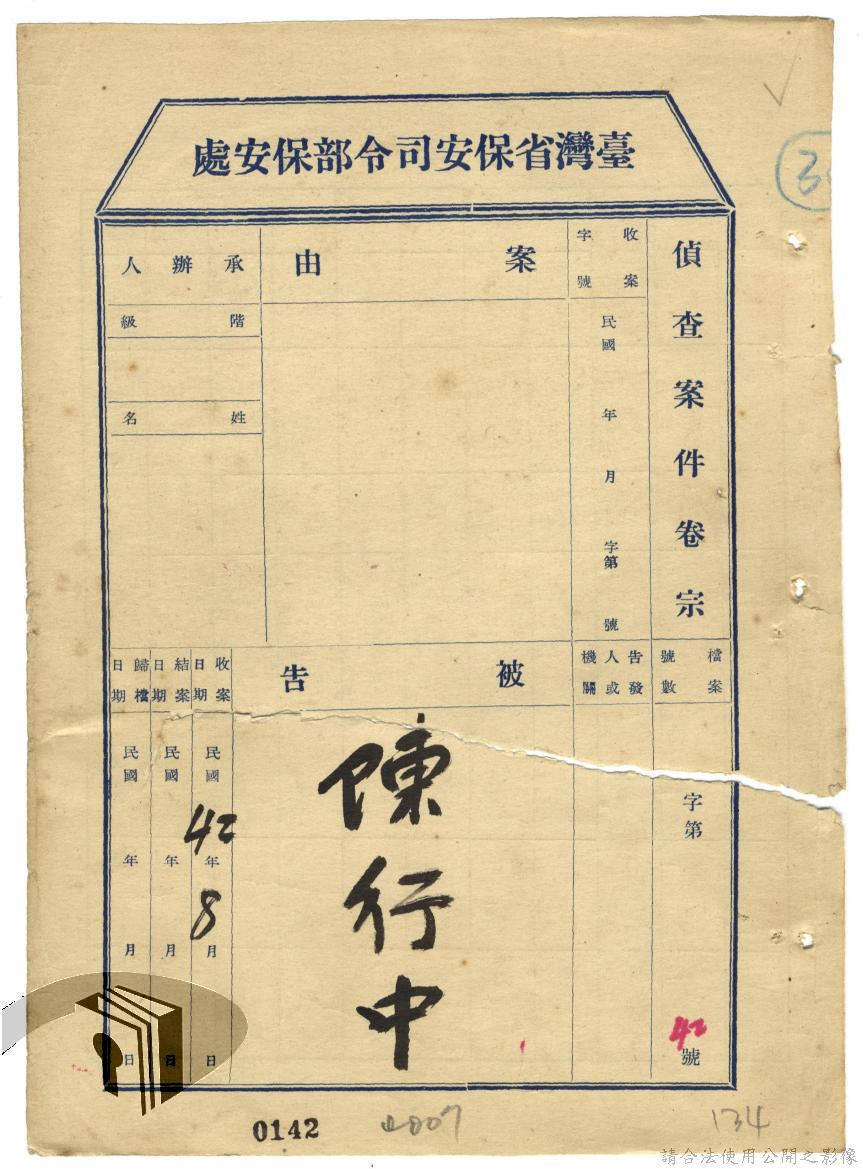 臺灣省保安司令部保安處
偵查案件卷宗
收案
字號
民國 年 月 字第 號
案由
承辦人
階級
姓名
檔案
號數
字第 42 號
告發
人或
機關
被告
陳行中
收案
日期
民國 42 年 8 月 日
結案
日期
民國 年 月 日
歸檔
日期
民國 年 月 日
0142
134
請合法使用公開之影像